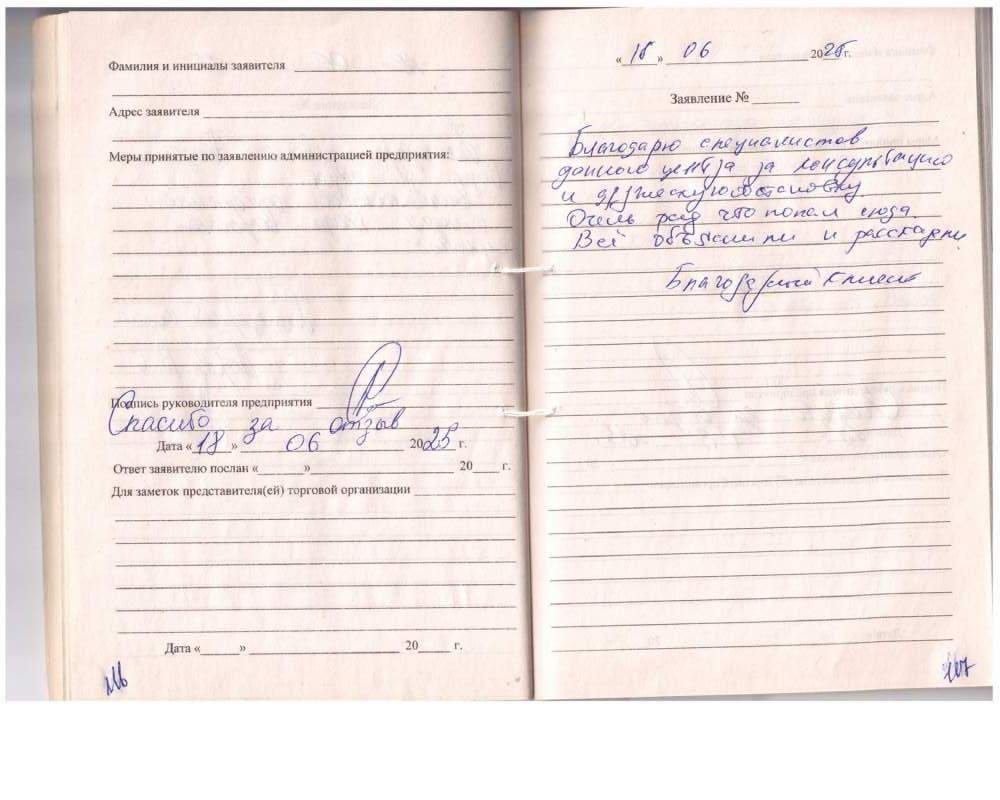 Фамилия и инициалы заявителя
Адрес заявителя
Меры принятые по заявлению администрацией предприятия:
Подпись руководителя предприятия
Спасибо за отзыв
Дата «18» 06 2025 г.
Ответ заявителю послан «   » 20 г.
Для заметок представителя(ей) торговой организации
Дата «   » 20 г.
« » 06 20 г.
Заявление №
Благодарю специалистов
данного центра за консультацию
и дружескую обстановку
Очень рад что попал сюда.
Всё объяснили и рассказали
Благодарный клиент